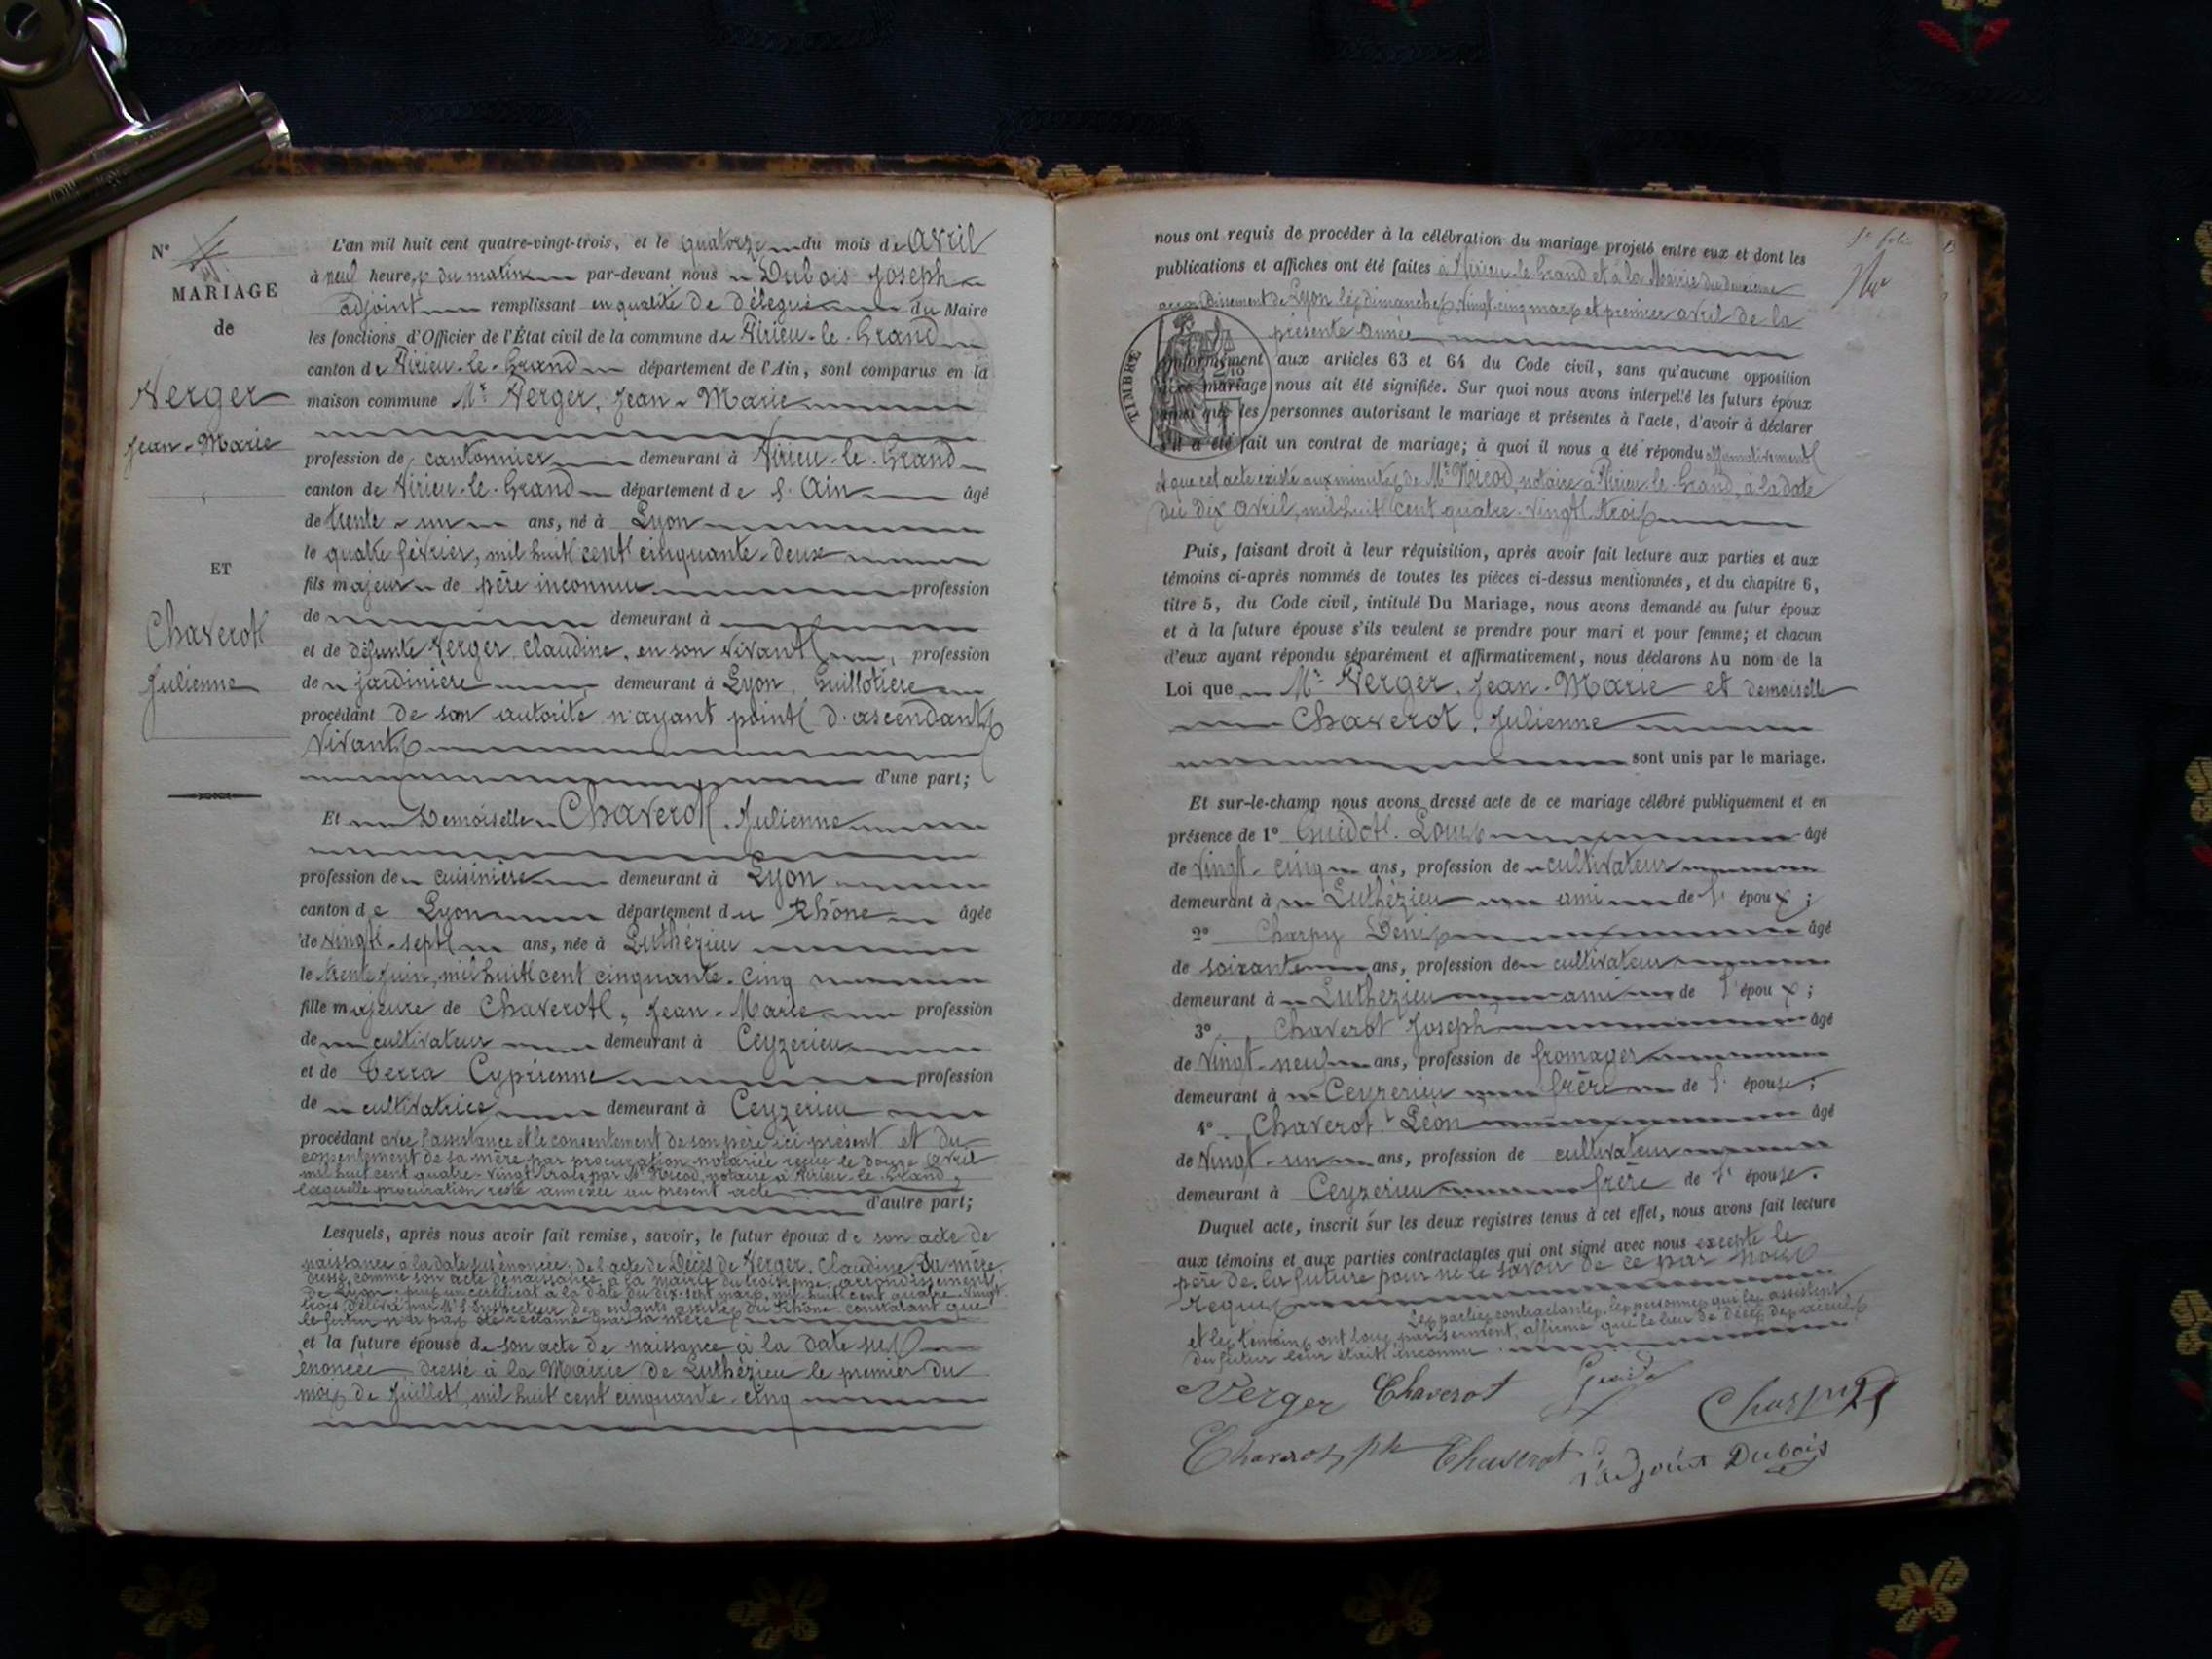 N° 4
MARIAGE
de
Verger
Jean-Marie
ET
Chaverot
Julienne
L'an mil huit cent quatre-vingt-trois, et le quatorze du mois de Avril
à neuf heures du matin par-devant nous Dubois Joseph
adjoint remplissant en qualité de délégué du Maire
les fonctions d'Officier de l'État civil de la commune de Virieu-le-Grand
canton de Virieu-le-Grand département de l'Ain, sont comparus en la
maison commune Mr Verger, Jean-Marie
profession de cantonnier demeurant à Virieu-le-Grand
canton de Virieu-le-Grand département de l'Ain âgé
de trente-un ans, né à Lyon
le quatre février, mil huit cent cinquante-deux
fils majeur de père inconnu profession
de demeurant à
et de défunte Verger Claudine, en son vivant, profession
de jardinière demeurant à Lyon, Guillotière
procédant de son autorité n'ayant point d'ascendants
vivants
d'une part;
Et Demoiselle Chaverot, Julienne
profession de cuisinière demeurant à Lyon
canton de Lyon département du Rhône âgée
de vingt-sept ans, née à Luthézieu
le trente juin, mil huit cent cinquante-cinq
fille majeure de Chaverot, Jean-Marie profession
de cultivateur demeurant à Ceyzerieu
et de Terra Cyprienne profession
de cultivatrice demeurant à Ceyzerieu
procédant avec l'assistance et le consentement de son père ici présent et du
consentement de sa mère par procuration notariée reçue le douze avril
mil huit cent quatre-vingt trois par Mr Nicod, notaire à Virieu-le-Grand,
laquelle procuration reste annexée au présent acte
d'autre part;
Lesquels, après nous avoir fait remise, savoir, le futur époux de son acte de
naissance à la date sus énoncée, de l'acte de Décès de Verger, Claudine, sa mère,
dressé, comme son acte de naissance, à la mairie du troisième arrondissement
de Lyon, plus un certificat à la date du dix-sept mars, mil huit cent quatre-vingt
trois délivré par Mr l'Inspecteur des enfants assistés du Rhône constatant que
le futur n'a pas été réclamé par sa mère
et la future épouse de son acte de naissance à la date sus
énoncée dressé à la Mairie de Luthézieu le premier du
mois de Juillet, mil huit cent cinquante-cinq
nous ont requis de procéder à la célébration du mariage projeté entre eux et dont les
publications et affiches ont été faites à Virieu-le-Grand et à la Mairie du deuxième
arrondissement de Lyon les dimanches, vingt-cinq mars et premier avril de la
présente année
TIMBRE
conformément aux articles 63 et 64 du Code civil, sans qu'aucune opposition
à ce mariage nous ait été signifiée. Sur quoi nous avons interpellé les futurs époux
ainsi que les personnes autorisant le mariage et présentes à l'acte, d'avoir à déclarer
s'il a été fait un contrat de mariage; à quoi il nous a été répondu affirmativement
et que cet acte existe aux minutes de Mr Nicod, notaire à Virieu-le-Grand, à la date
du dix avril, mil huit cent quatre-vingt trois
Puis, faisant droit à leur réquisition, après avoir fait lecture aux parties et aux
témoins ci-après nommés de toutes les pièces ci-dessus mentionnées, et du chapitre 6,
titre 5, du Code civil, intitulé Du Mariage, nous avons demandé au futur époux
et à la future épouse s'ils veulent se prendre pour mari et pour femme; et chacun
d'eux ayant répondu séparément et affirmativement, nous déclarons Au nom de la
Loi que Mr Verger, Jean-Marie et demoiselle
Chaverot, Julienne
sont unis par le mariage.
Et sur-le-champ nous avons dressé acte de ce mariage célébré publiquement et en
présence de 1° Guidot, Louis âgé
de vingt-cinq ans, profession de cultivateur
demeurant à Luthézieu ami de l'époux;
2° Charpy Denis âgé
de soixante ans, profession de cultivateur
demeurant à Luthézieu ami de l'époux;
3° Chaverot Joseph âgé
de vingt-neuf ans, profession de fromager
demeurant à Ceyzerieu frère de l'épouse;
4° Chaverot Léon âgé
de vingt-un ans, profession de cultivateur
demeurant à Ceyzerieu frère de l'épouse.
Duquel acte, inscrit sur les deux registres tenus à cet effet, nous avons fait lecture
aux témoins et aux parties contractantes qui ont signé avec nous excepté le
père de la future pour ne le savoir de ce par nous
requis
Les parties contractantes, les personnes qui les assistent
et les témoins ont tous par serment, affirmé que le lieu de décès des aïeuls
du futur leur était inconnu.
Verger Chaverot
Chaverot Chaverot l'adjoint Dubois